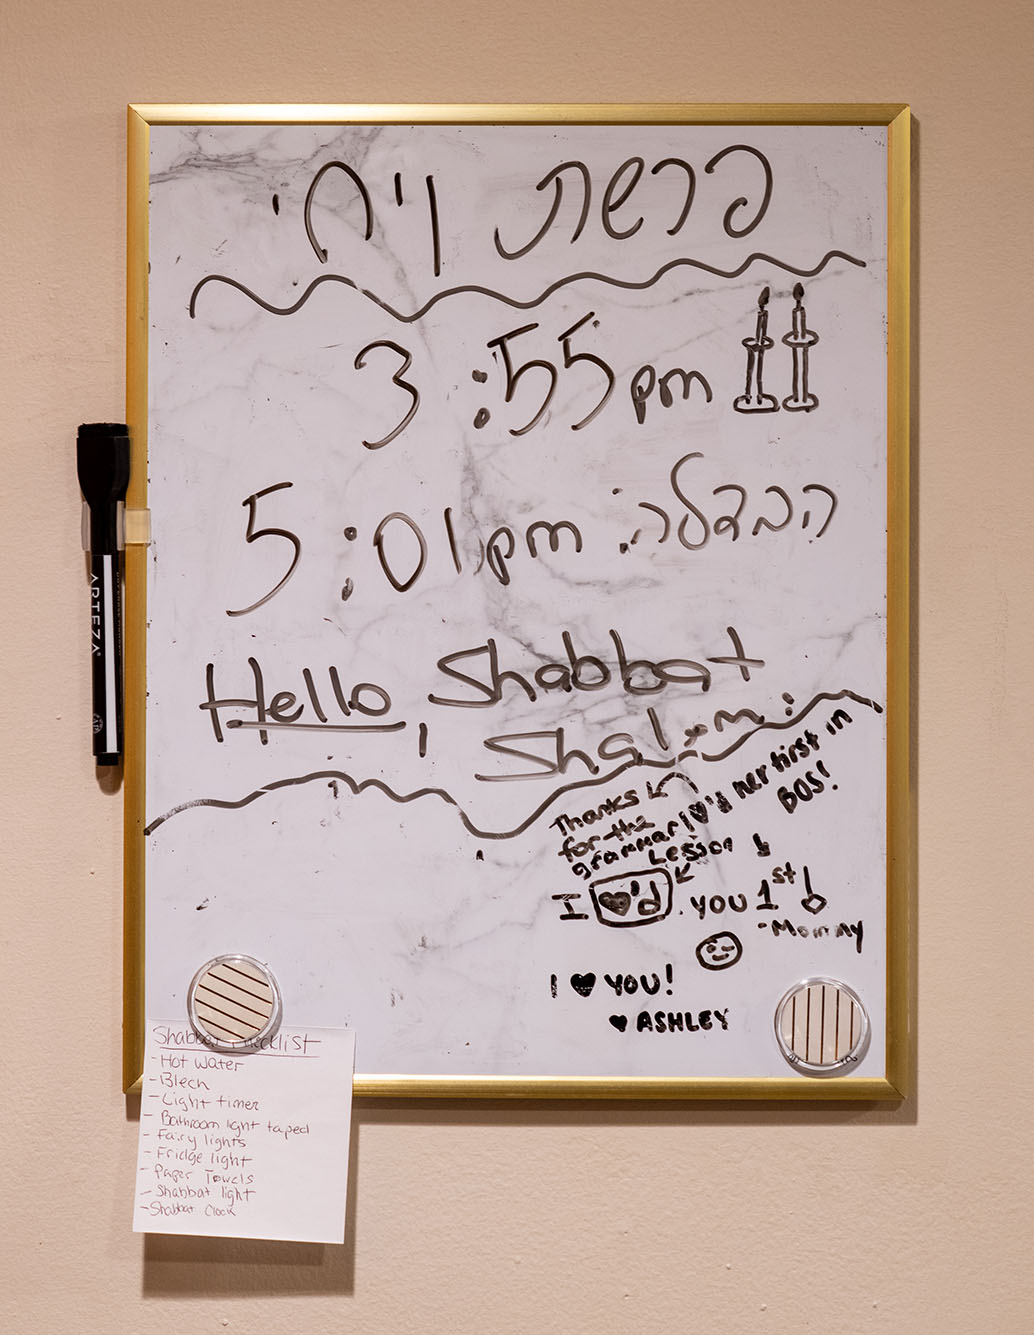 פרשת ויחי
3:55pm
הבדלה: 5:01pm
Hello, Shabbat
Shalom:
Thanks
for the
grammar
Lesson
I ♥'d her first in
BOS!
I ♥'d you 1st!
-Mommy
I ♥ YOU!
♥ ASHLEY
ARTEZA
Shabbat Checklist
-Hot water
-Blech
-Light timer
-Bathroom light taped
-Fairy lights
-Fridge light
-Paper Towels
-Shabbat light
-Shabbat Clock